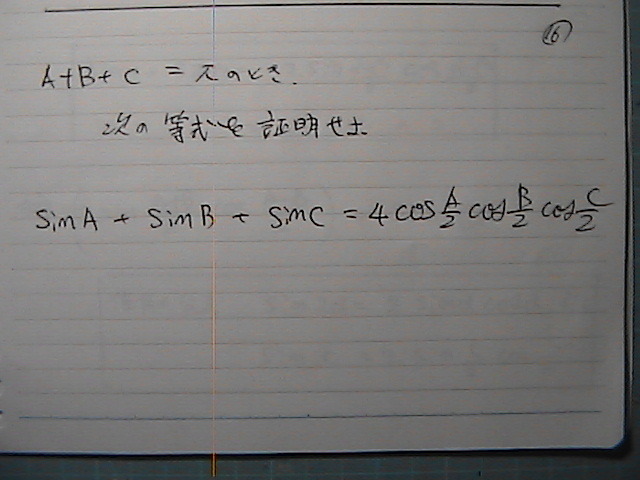 ⑯
A+B+C = πのとき.
次の等式を証明せよ
sinA + sinB + sinC = 4 cos A/2 cos B/2 cos C/2